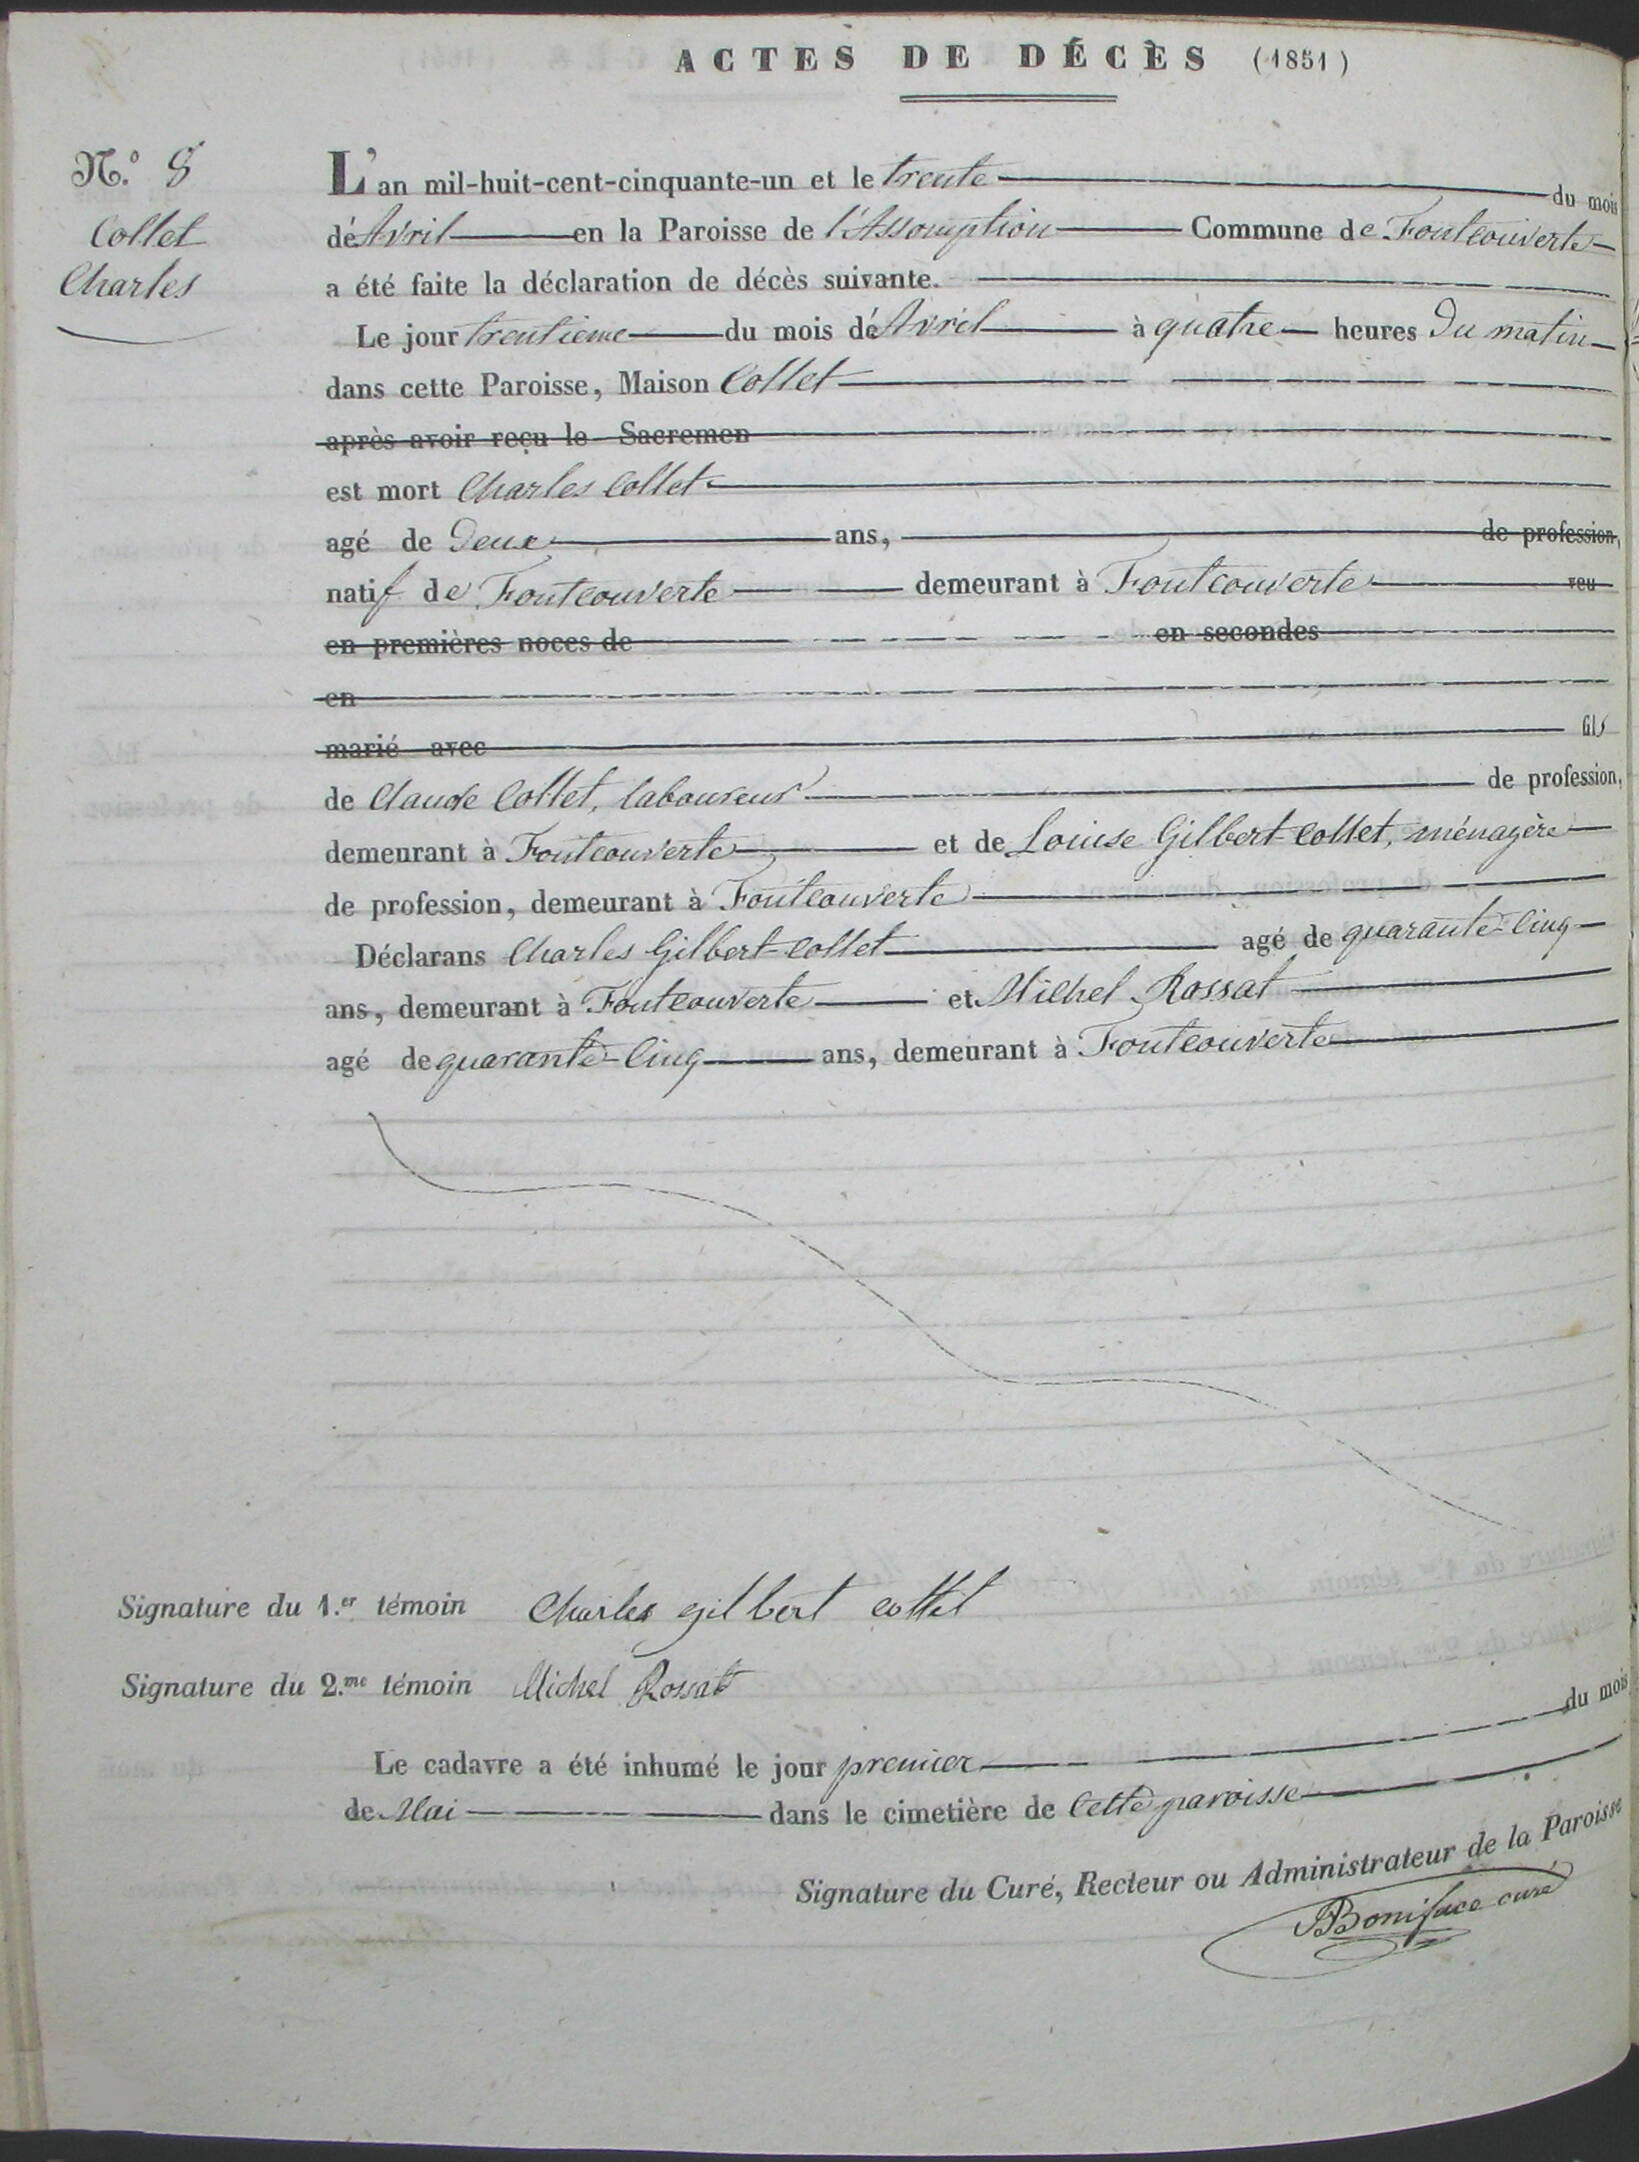 ACTES DE DÉCÈS (1851)
N.º 8
Collet
Charles
L'an mil-huit-cent-cinquante-un et le trente du mois
d'Avril en la Paroisse de l'Assomption Commune de Fontcouverte
a été faite la déclaration de décès suivante.
Le jour trentième du mois d'Avril à quatre heures du matin
dans cette Paroisse, Maison Collet
après avoir reçu le Sacremen
est mort Charles Collet
agé de deux ans, de profession,
natif de Fontcouverte demeurant à Fontcouverte veu
en premières noces de en secondes
en
marié avec fils
de Claude Collet, laboureur de profession,
demeurant à Fontcouverte et de Louise Gilbert-Collet, ménagère
de profession, demeurant à Fontcouverte
Déclarans Charles Gilbert-Collet agé de quarante-cinq
ans, demeurant à Fontcouverte et Michel Rossat
agé de quarante-cinq ans, demeurant à Fontcouverte
Signature du 1.er témoin Charles gilbert collet
Signature du 2.me témoin Michel Rossat
Le cadavre a été inhumé le jour premier du mois
de Mai dans le cimetière de cette paroisse
Signature du Curé, Recteur ou Administrateur de la Paroisse
Boniface curé